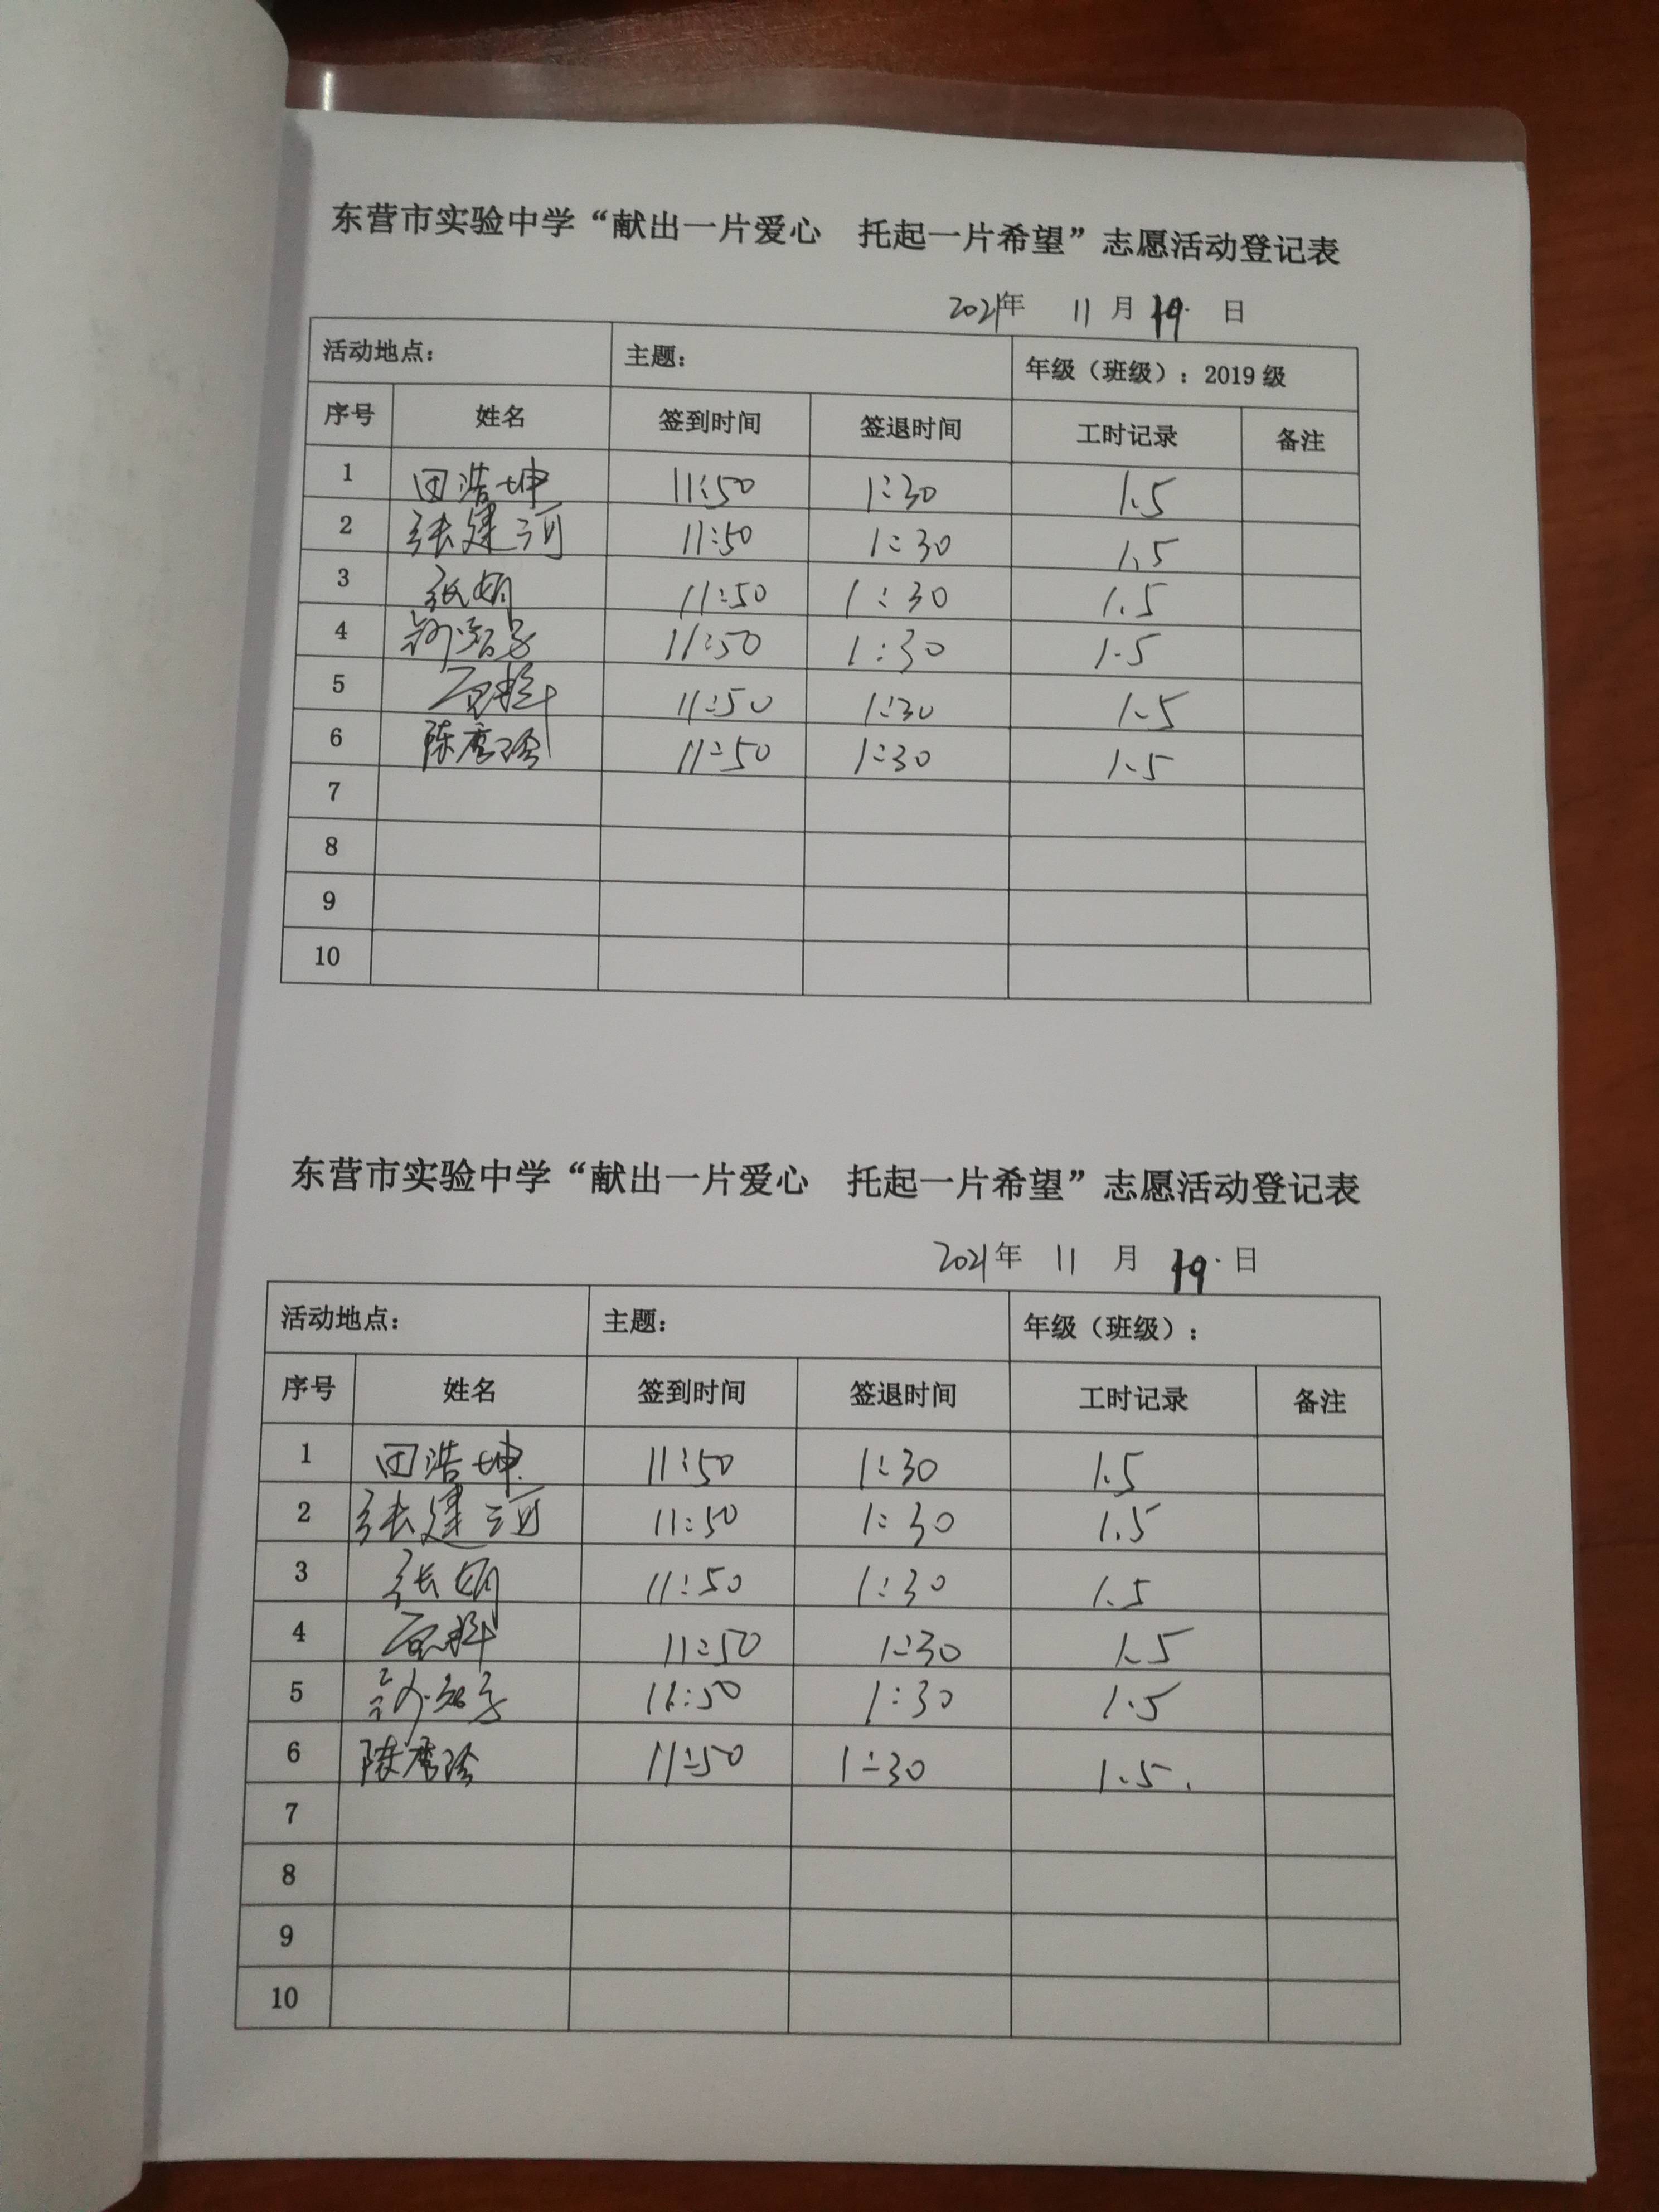 东营市实验中学“献出一片爱心 托起一片希望”志愿活动登记表
2021年 11 月 19 日
活动地点： 主题： 年级（班级）：2019 级
序号 姓名 签到时间 签退时间 工时记录 备注
1 田浩坤 11:50 1:30 1.5
2 张建河 11:50 1:30 1.5
3 张娟 11:50 1:30 1.5
4 11:50 1:30 1.5
5 11:50 1:30 1.5
6 陈秀玲 11:50 1:30 1.5
7
8
9
10
东营市实验中学“献出一片爱心 托起一片希望”志愿活动登记表
2021年 11 月 19 日
活动地点： 主题： 年级（班级）：
序号 姓名 签到时间 签退时间 工时记录 备注
1 田浩坤 11:50 1:30 1.5
2 张建河 11:50 1:30 1.5
3 张娟 11:50 1:30 1.5
4 11:50 1:30 1.5
5 11:50 1:30 1.5
6 陈秀玲 11:50 1:30 1.5
7
8
9
10